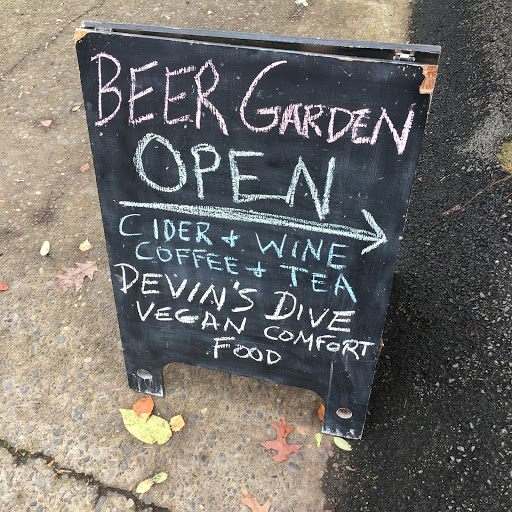 BEER GARDEN
OPEN
CIDER + WINE
COFFEE + TEA
DEVIN'S DIVE
VEGAN COMFORT
FOOD